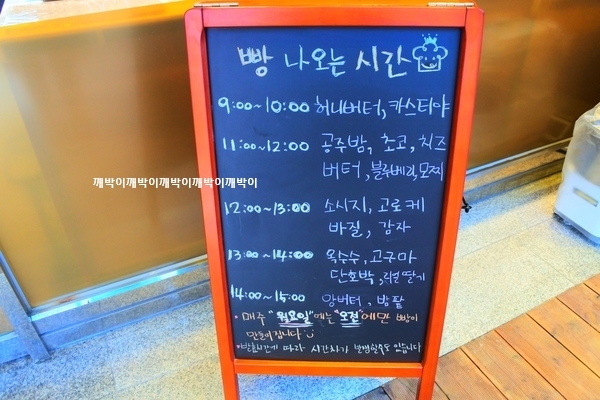 빵 나오는 시간
9:00~10:00 허니버터, 카스티야
11:00~12:00 공주밤, 초코, 치즈
버터, 블루베리, 모찌
깨박이깨박이깨박이깨박이깨박이
12:00~13:00 소시지, 고로케
바질, 감자
13:00~14:00 옥수수, 고구마
단호박, 리얼딸기
14:00~15:00 앙버터, 밤팥
• 매주 "월요일"에는 "오전"에만 빵이
만들어집니다
• 발효시간에 따라 시간차가 발생할수도 있습니다